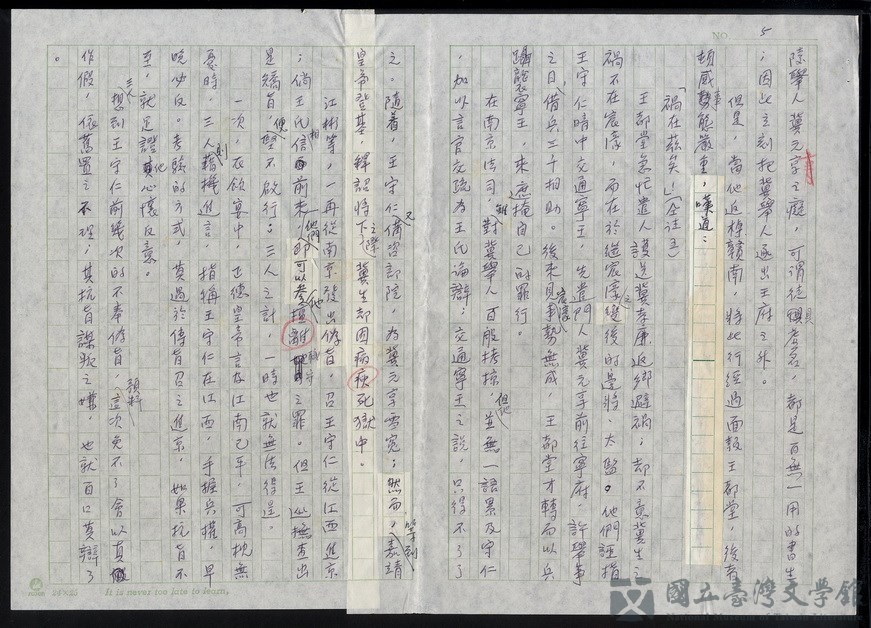 5
NO
陸舉人冀元亨之庭，可謂徒具虛名，都是百無一用的書生
；因此立刻把冀舉人逐出王府之外。
但是，當他返棹贛南，將此行經過面報王都堂，後者
頓感事態嚴重，嘆道：
「禍在茲矣！」（全註五）
王都堂急忙遣人護送冀孝廉返鄉避禍；却不意冀生之
禍不在宸濠，而在於繼宸濠之後的邊將、太監。他們誣指
王守仁暗中交通寧王，先遣門人冀元亨前往寧府，許舉事
之日，借兵三千相助。後來見宸濠事勢無成，王都堂才轉而以兵
躡襲寧王，來遮掩自己的罪行。
在南京法司，雖對冀舉人百般拷掠，但他並無一語累及守仁
，加以言官交疏為王氏論辯；交通寧王之說，只得不了了
之。隨着，王守仁又備咨部院，為冀元亨雪冤；然而，等到嘉靖
皇帝登基，釋詔將下之際，冀生却因病瘐死獄中。
江彬等，一再從南京發出偽旨，召王守仁從江西進京
；倘王氏相信前來，他們即可以參他擅離職守之罪。但王巡撫查出
是矯旨，便堅不啟行；三人之計，一時也就無法得逞。
一次，衣飲宴中，正德皇帝言及江南已平，可高枕無
憂時，三人則藉機進言，指稱王守仁在江西，手握兵權，早
晚必反。考驗的方式，莫過於傳旨召之進京，如果抗旨不
至，就足證他心懷反意。
三人想到王守仁前幾次的不奉偽旨，預料這次免不了會以真
作假，依舊置之不理；其抗旨謀叛之嫌，也就百口莫辯了
。
24×25
It is never too late to learn.
國立臺灣文學館